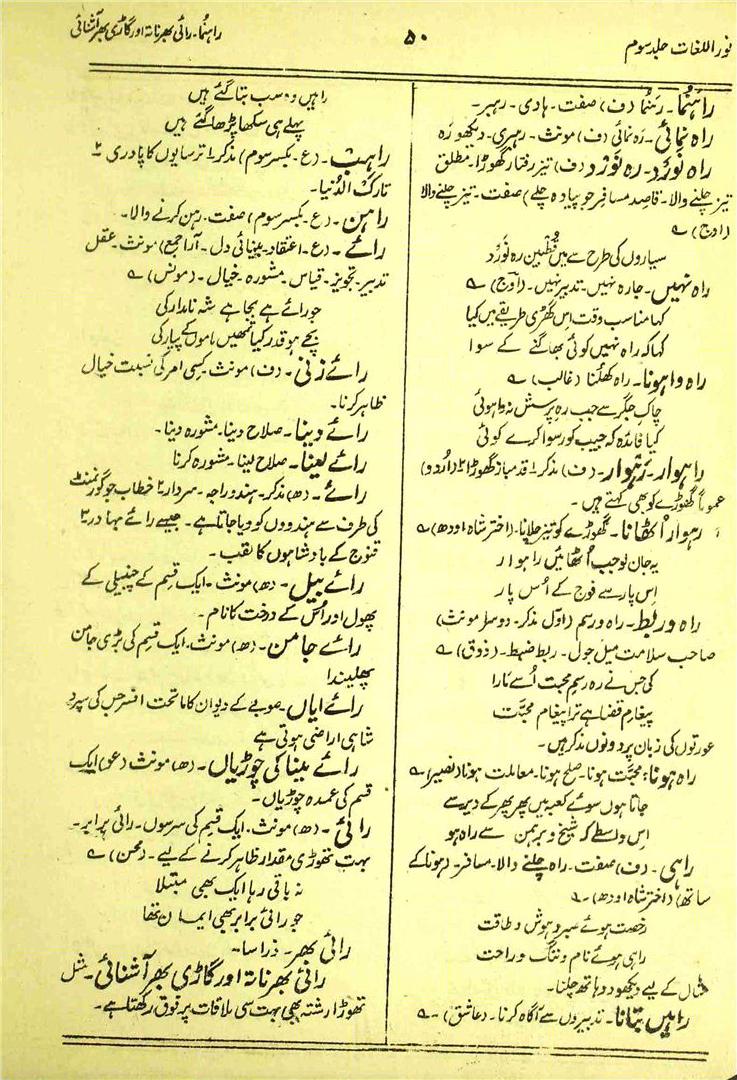 نور اللغات جلد سوم
۵۰
راہنُما۔ رائی بھر ناتہ اور گاڑی بھر آشنائی
راہنُما۔ رَہنُما (ف) صفت۔ ہادی۔ رہبر۔
راہ نُمائی۔ رَہ نمائی (ف) مونث۔ رہبری۔ دیکھو رَہ
راہ نَوَرْد۔ رہ نورْد (ف) تیز رفتار گھوڑا۔ مطلق
تیز چلنے والا۔ قاصد مسافر جو پیادہ چلے) صفت۔ تیز چلنے والا
(اوج) ؎
سیاروں کی طرح سے ہیں قُطبین رہ نَورْد
راہ نہیں۔ چارہ نہیں۔ تدبیر نہیں۔ (اوج) ؎
کہا مناسب وقت اِس گھڑی طریقے ہیں کیا
کہا کہ راہ نہیں کوئی بھاگنے کے سوا
راہ وا ہونا۔ راہ کھُلنا (غالب) ؎
چاکِ جگر سے جب رہِ پرسش نہ وا ہوئی
کیا فائدہ کہ جیب کو رسوا کرے کوئی
راہوار۔ رَہْوار۔ (ف) مذکر ۱ قدمباز گھوڑا ۲ (اُردو)
عموماً گھوڑے کو بھی کہتے ہیں۔
رہوار اُٹھانا۔ گھوڑے کو تیز چلانا۔ (اختر شاہ اودھ) ؎
یہ جان لو جب اُٹھائیں راہوار
اِس پار سے فوج کے اُس پار
راہ و ربط۔ راہ و رسم (اوّل مذکر۔ دوسرا مونث)
صاحب سلامت میل جول۔ ربط ضبط۔ (ذوق) ؎
کی جس نے رہ رسمِ محبت اُسے مارا
پیغامِ قضا ہے ترا پیغام محبَّت
عورتوں کی زبان پر دونوں مذکر ہیں۔
راہ ہونا۔ محبَّت ہونا۔ صلح ہونا۔ معاملت ہونا (نصیر) ؎
جاتا ہوں سوئے کعبہ میں پھر پھر کے دیر سے
اِس واسطے کہ شیخ و برہمن سے راہ ہو
راہی۔ (ف) صفت۔ راہ چلنے والا۔ مسافر۔ (ہونا کے
ساتھ) (اختر شاہ اودھ)۔ ؎
رخصت ہوئے صبر و ہوش و طاقت
راہی ہوئے نام و ننگ و راحت
مثال کے لیے دیکھو دو ہاتھ چلنا۔
راہیں بتانا۔ تدبیروں سے آگاہ کرنا۔ (عاشق) ؎
راہیں وہ سب بتا گئے ہیں
پہلے ہی سکھا پڑھا گئے ہیں
راہب۔ (ع۔ بکسر سوم) مذکر ۱ ترسایوں کا پادری ۲
تارک الدُّنیا۔
راہن۔ (ع۔ بکسر سوم) صفت۔ رہن کرنے والا۔
رائے۔ (ع۔ اعتقاد۔ بینائی دل۔ آرا جمع) مونث۔ عقل
تدبیر۔ تجویز۔ قیاس۔ مشورہ۔ خیال۔ (مونس) ؎
جو رائے ہے بجا ہے شہ نامدار کی
بچے ہو قدر کیا تمھیں ماموں کے پیار کی
رائے زنی۔ (ف) مونث۔ کسی امر کی نسبت خیال
ظاہر کرنا۔
رائے دینا۔ صلاح دینا۔ مشورہ دینا۔
رائے لینا۔ صلاح لینا۔ مشورہ کرنا
رائے۔ (ھ) مذکر۔ ہندو راجہ۔ سردار ۲ خطاب جو گورنمنٹ
کی طرف سے ہندووں کو دیا جاتا ہے۔ جیسے رائے بہادر ۳
قنوج کے بادشاہوں کا لقب۔
رائے بیل۔ (ھ) مونث۔ ایک قسم کے چنبیلی کے
پھول اور اُس کے درخت کا نام۔
رائے جامن۔ (ھ) مونث۔ ایک قسم کی بڑی جامن
پھلیندا
رائے ایاں۔ صوبے کے دیوان کا ماتحت افسر جس کی سپرد
شاہی اراضی ہوتی ہے
رائے بینا کی چوڑیاں۔ (ھ) مونث (عو) ایک
قسم کی عمدہ چوڑیاں۔
رائی۔ (ھ) مونث۔ ایک قسم کی سرسوں۔ رائی برابر۔
بہت تھوڑی مقدار ظاہر کرنے کے لیے۔ (محسن) ؎
نہ باقی رہا ایک بھی مبتلا
جو رائی برابر بھی ایمان تھا
رائی بھر۔ ذرا سا۔
رائی بھر ناتہ اور گاڑی بھر آشنائی۔ مثل
تھوڑا رشتہ بھی بہت سی ملاقات پر فوق رکھتا ہے۔